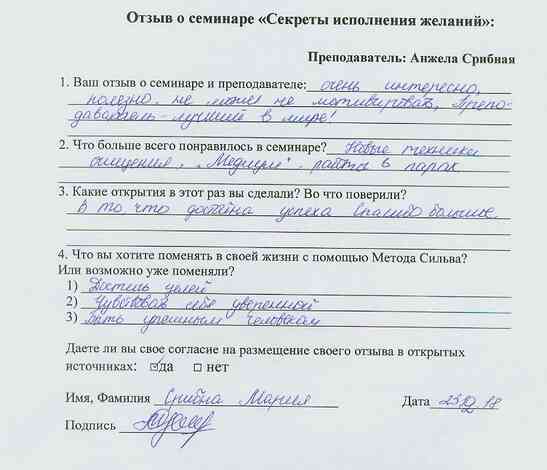 Отзыв о семинаре «Секреты исполнения желаний»:
Преподаватель: Анжела Срибная
1. Ваш отзыв о семинаре и преподавателе: очень интересно,
полезно, не может не мотивировать, Препо-
даватель - лучший в мире!
2. Что больше всего понравилось в семинаре? Новые техники
очищения, "Медиум", работы в парах
3. Какие открытия в этот раз вы сделали? Во что поверили?
В то, что достойна успеха Спасибо большое
4. Что вы хотите поменять в своей жизни с помощью Метода Сильва?
Или возможно уже поменяли?
1) Достичь целей
2) Чувствовать себя уверенной
3) Быть успешным человеком
Даете ли вы свое согласие на размещение своего отзыва в открытых
источниках: да нет
Имя, Фамилия Мария
Дата 18
Подпись